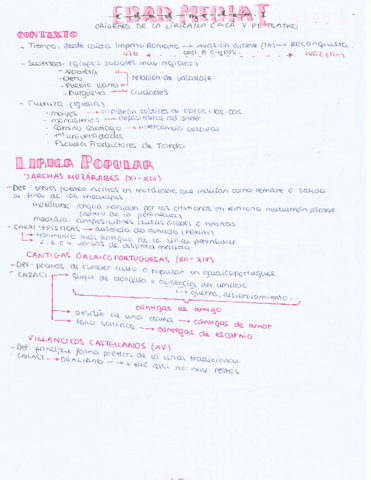 EDAD MEDIA I
ORÍGENES DE LA LÍRICA, LA ÉPICA Y EL TEATRO
CONTEXTO
- Tiempo: desde caída Imperio Romano → invasión árabe (711) → RECONQUISTA
476 casi 8 siglos 1492 (fin)
- Sociedad: (grupos sociales muy rígidos)
- Nobleza
- Clero → relación de vasallaje
- Pueblo llano
- Burguesía → ciudades
- Cultura (Iglesia)
- monjes → copiaron códices de obras clásicas
- monasterios → depositarios del saber
- Camino Santiago → intercambio cultural
- 1as universidades
- Escuela Traductores de Toledo
LÍRICA POPULAR
JARCHAS MOZÁRABES (XI-XIV)
- Def: breves poemas escritos en mozárabe, que incluían como remate o salida
al final de las moaxajas
mozárabe: lengua hablada por los cristianos en territorio musulmán/árabe
(dentro de la península)
moaxaja: composiciones cultas árabes o hebreas
- CARACTERÍSTICAS → ausencia del amado (habib)
→ testimonio más antiguo de la lírica peninsular
→ 2 a 4 versos de distinta medida
CANTIGAS GALAICO PORTUGUESAS (XII-XIV)
- Def: poemas de carácter culto o popular en galaicoportugués
- CARACT → queja de doncella x ausencia del amado
→ guerra, distanciamiento...
cantigas de amigo
→ atención de una dama → cántigas de amor
→ tono satírico → cántigas de escarnio
VILLANCICOS CASTELLANOS (XV)
- Def: principal forma poética de la lírica tradicional
- CARACT → ORALIDAD → x eso casi no hay restos